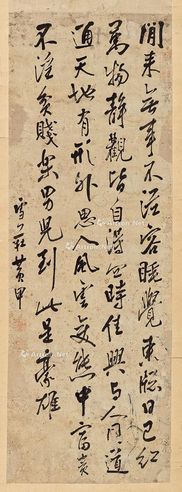 閒來無事不從容睡覺東窗日已紅
萬物靜觀皆自得四時佳興與人同道
通天地有形外思風雲變態中富貴
不淫貧賤樂男兒到此是豪雄
雪莊黃甲